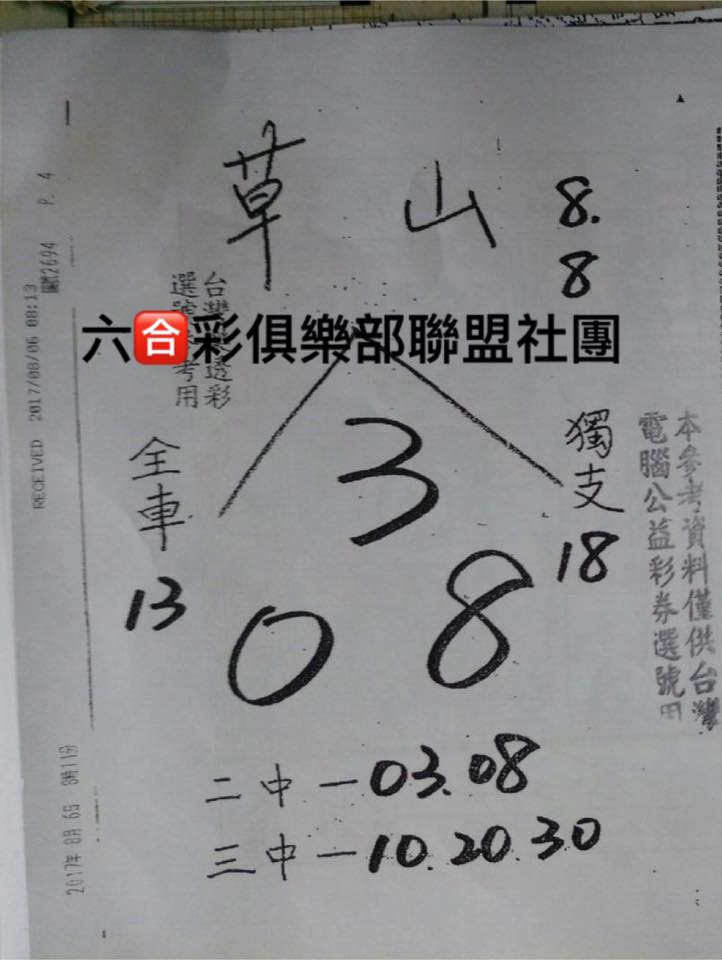 P. 4
傳2694
RECEIVED 2017/08/06 08:13
2017年 8月 6日 8時11分
草 山 8.
8
台灣 透彩
選號 考用
六合彩俱樂部聯盟社團
全車
13
獨支
18
3
0 8
本參考資料僅供台灣
電腦公益彩券選號用
二中－03.08
三中－10.20.30